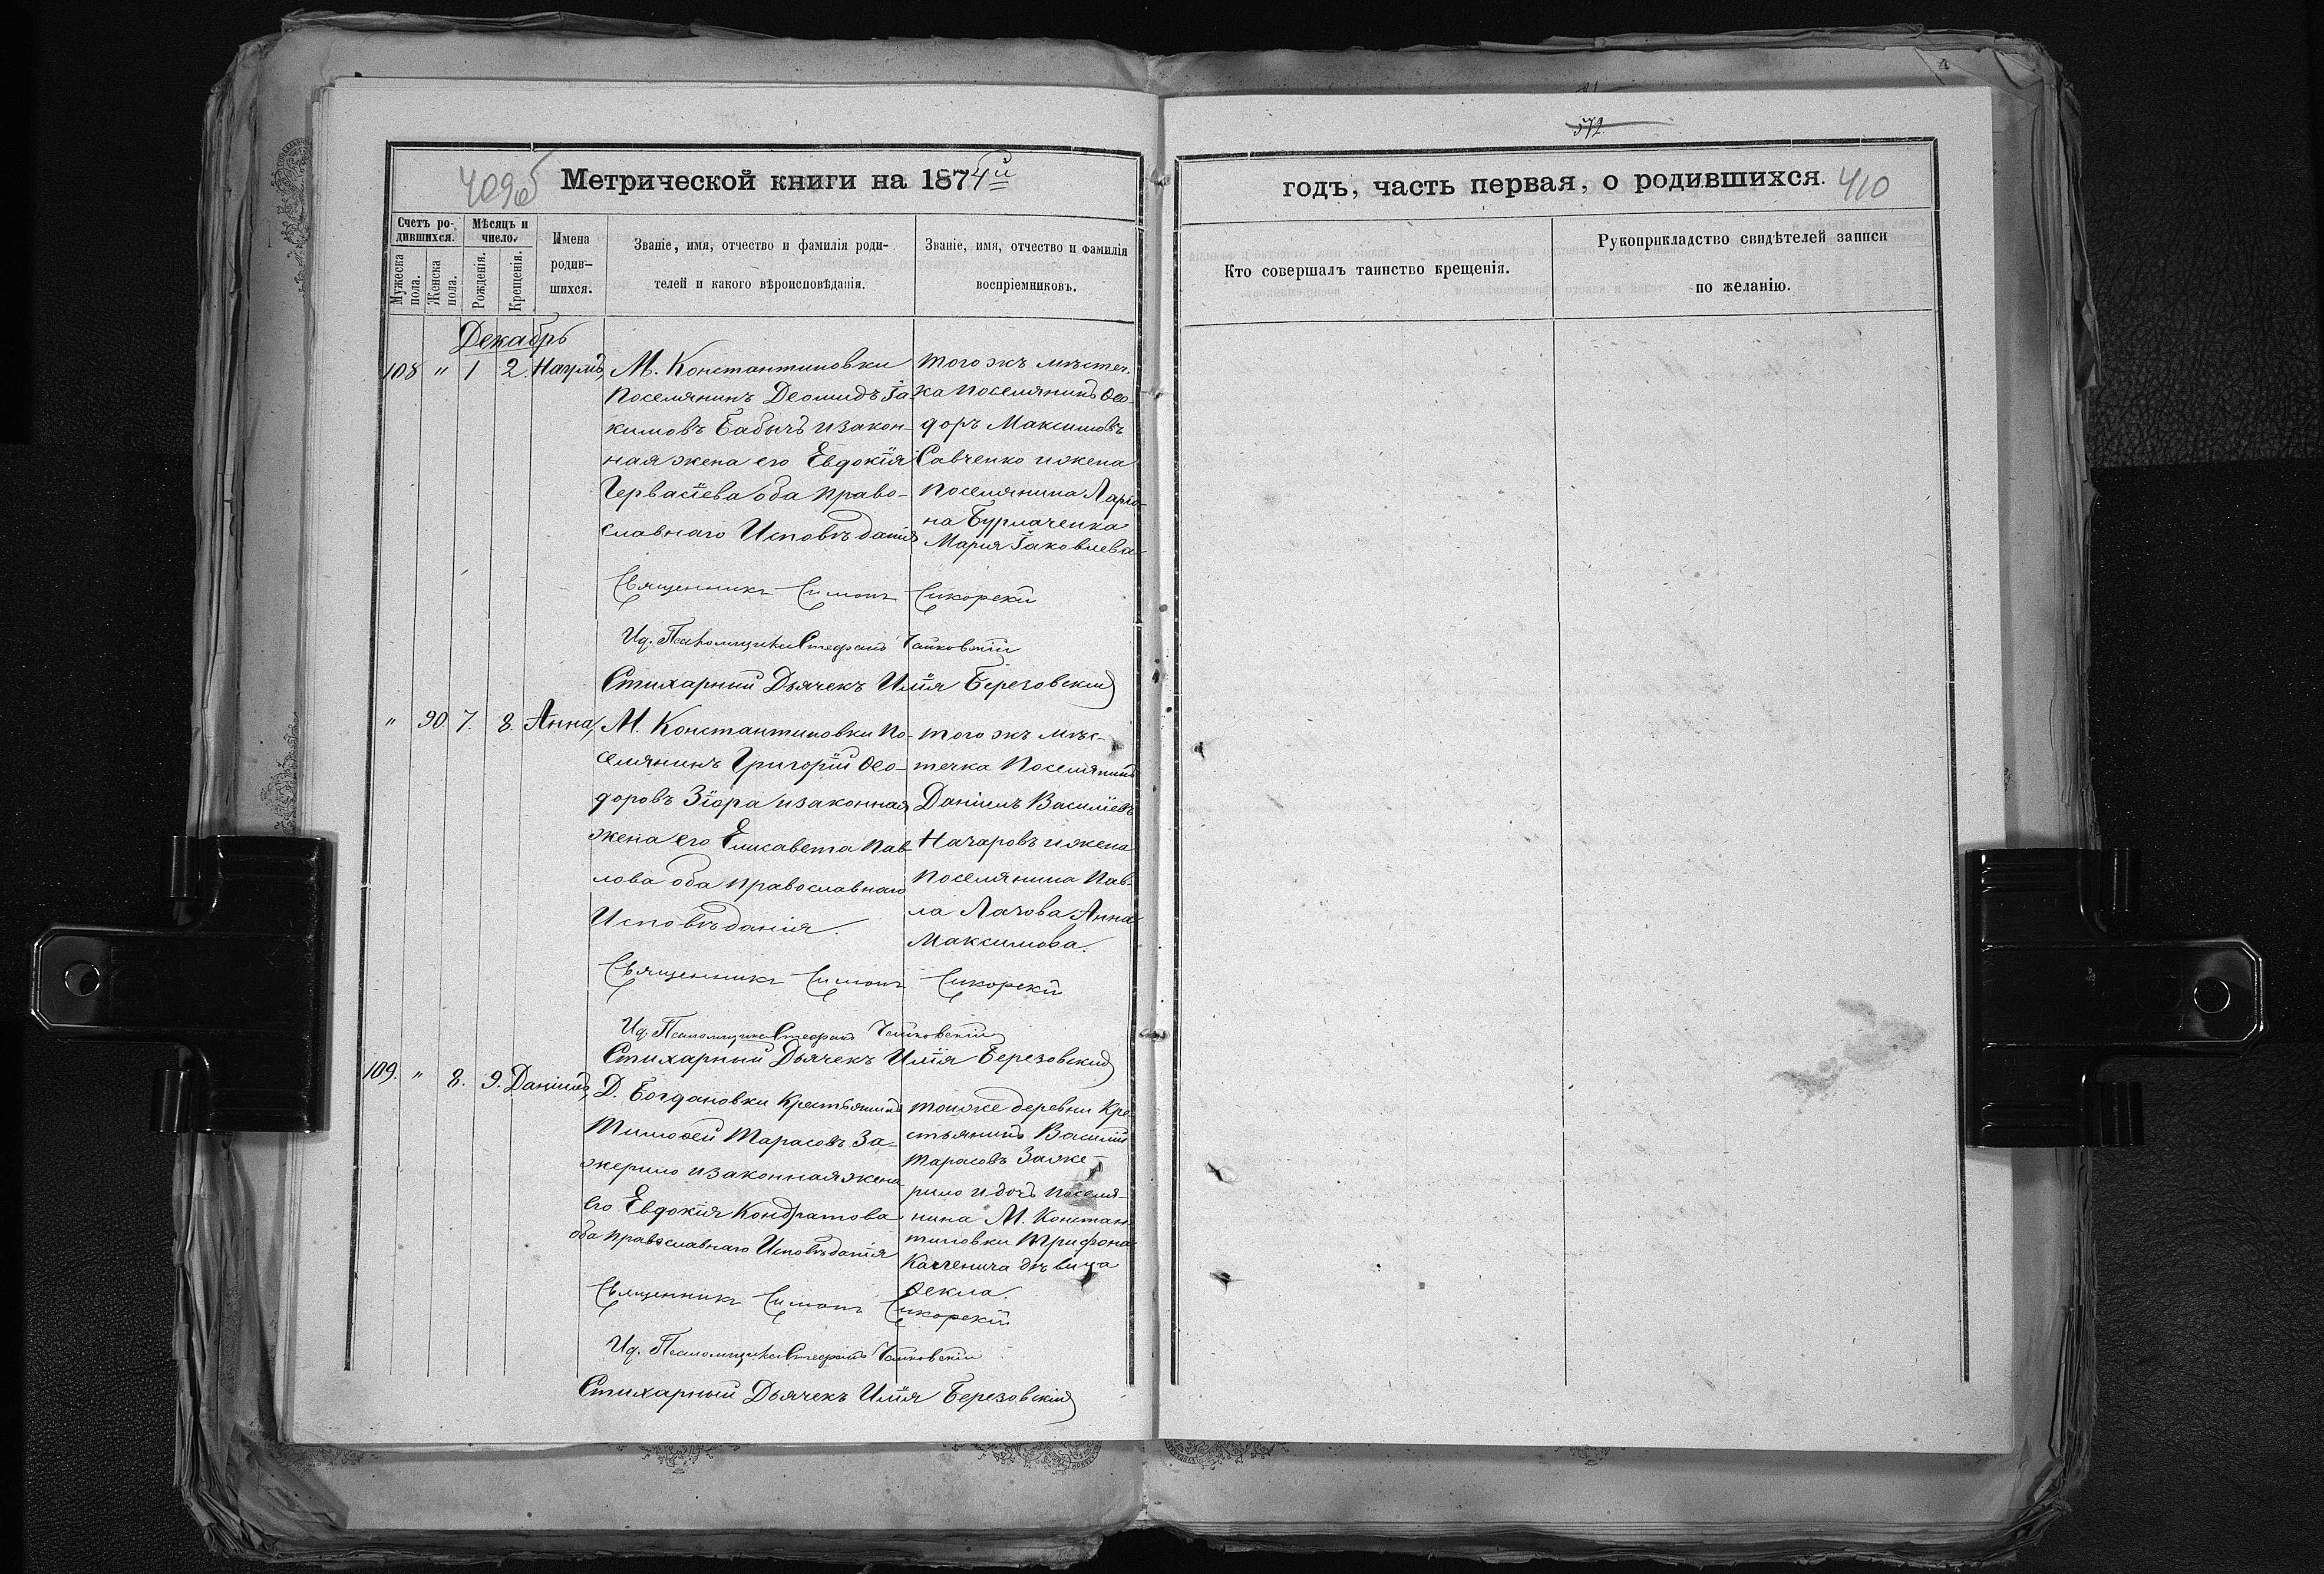 409об
Метрической книги на 1874й
Счетъ ро-
дившихся.
Мужеска
пола.
Женска
пола.
Мѣсяцъ и
число.
Рожденія.
Крещенія.
Имена
родив-
шихся.
Званіе, имя, отчество и фамилія роди-
телей и какого вѣроисповѣданія.
Званіе, имя, отчество и фамилія
воспріемниковъ.
Декабрь
108 " 1 2 Наумъ,
М. Константиновки
Поселянинъ Деомидъ Іа-
кимовъ Бабычъ изакон-
ная жена его Евдокія
Гервасіева оба право-
славнаго Исповѣданія
того жъ мѣстеч-
ка поселянинъ Ѳео-
доръ Максимовъ
Савченко ижена
поселянина Ларіо-
на Бурлаченка
Марія Іаковлева
Священникъ Симонъ Сикорскій
Ид. Псаломщика Стефанъ Чайковскій
Стихарный Дьячекъ Илія Березовскій
" 90. 7. 8. Анна,
М. Константиновки по-
селянинъ Григорій Ѳео-
доровъ Зіора изаконная
жена его Елисавета Пав-
лова оба православнаго
Исповѣданія.
того жъ мѣс-
течка Поселянинъ
Даніилъ Василіевъ
Начаровъ ижена
поселянина Пав-
ла Лачова Анна
Максимова.
Священникъ Симонъ Сикорскій
Ид. Псаломщика Стефанъ Чайковскій
Стихарный Дьячекъ Илія Березовскій
109. " 8. 9. Даніилъ,
Д. Богдановки Крестьянинъ
Тимоѳей Тарасовъ За-
жерило изаконная жена
его Евдокія Кондратова
оба православнаго Исповѣданія
тойже деревни Кре-
стьянинъ Василій
Тарасовъ Заже-
рило и дочь поселя-
нина М. Констан-
тиновки Трифона
дѣвица
Ѳекла.
Священникъ Симонъ Сикорскій
Ид. Псаломщика Стефанъ Чайковскій
Стихарный Дьячекъ Илія Березовскій
572
годъ, часть первая, о родившихся.
410
Кто совершалъ таинство крещенія.
Рукоприкладство свидѣтелей записи
по желанію.